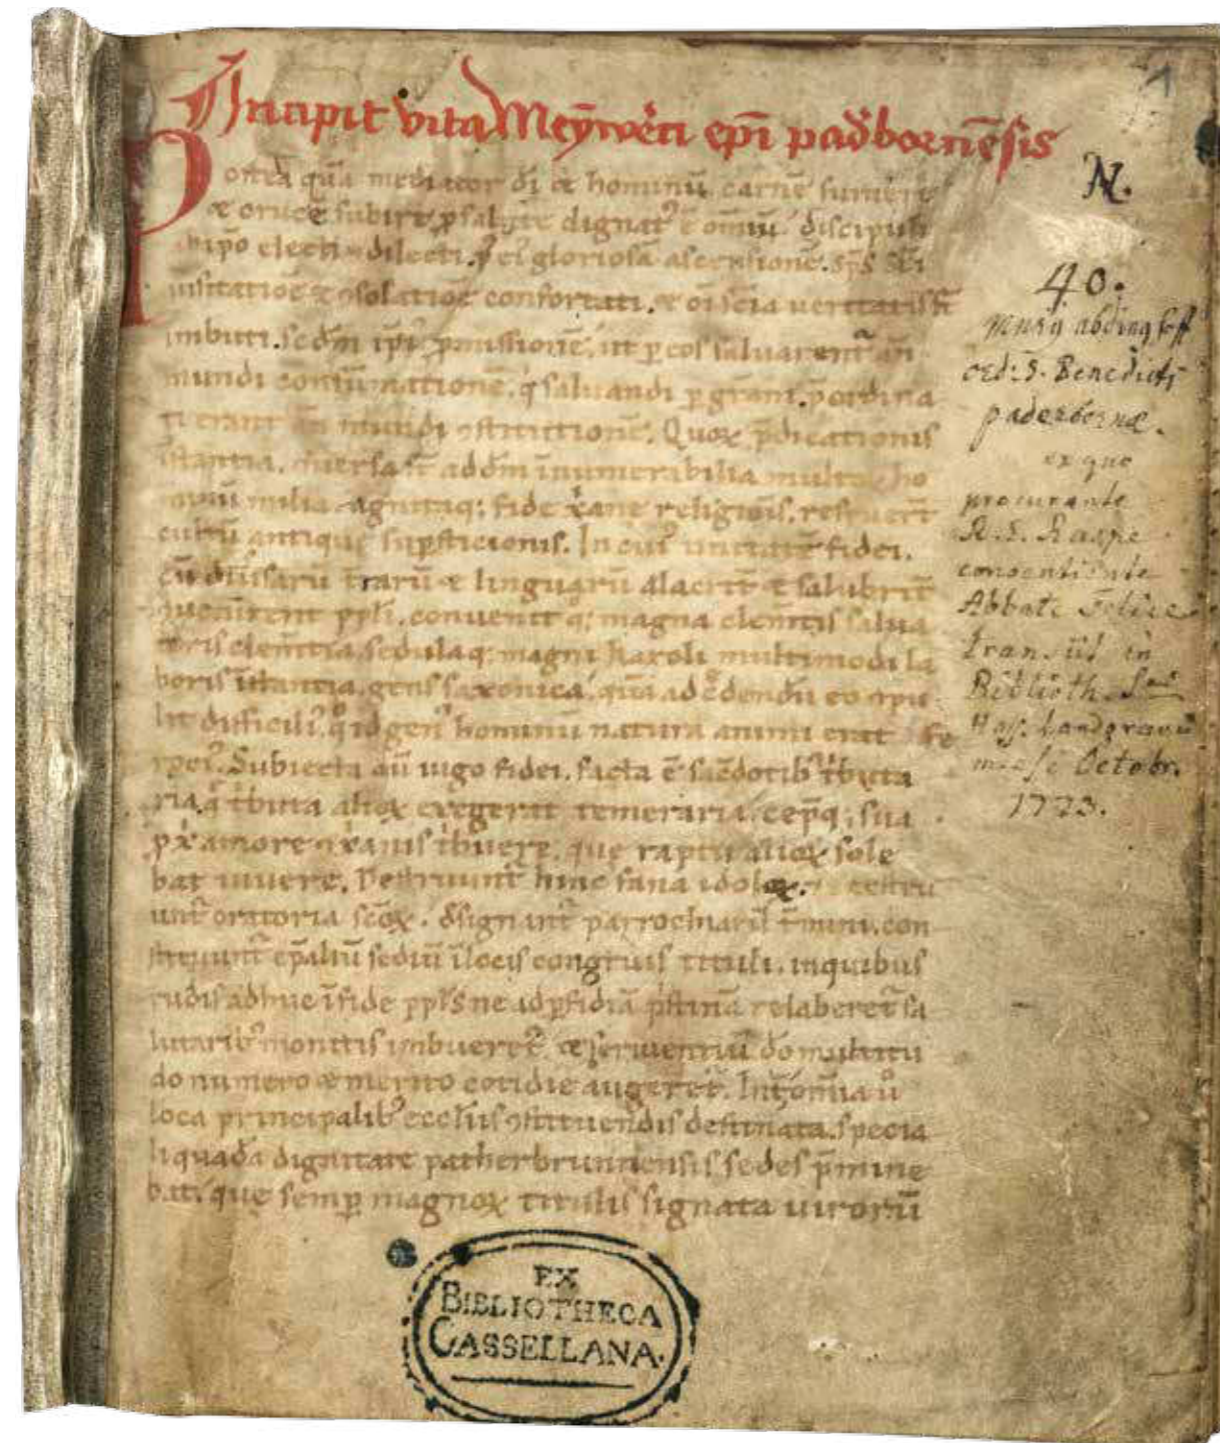 Incipit vita Meynwerci epi padbornensis
Postea qua mediator di et hominu carne sumere
et cruce subire, psalute dignat e omniu discipuli
abipo electi et dilecti, p ei gloriosa ascensione, sps sci
uisitatioe et ꝯsolatioe confortati, et oi scia ueritatis
imbuti, scdm ipi pmissione, ut p eos saluarent an
mundi consummatione, q saluandi p gram, pordina
ti erant an mundi ꝯstitutione. Quoꝝ pdicationis
istantia, ꝯuersa st addm inumerabilia multa ho
minu milia, agnitaq; fide xane religionis, respuert
cultu antique supsticionis. In cui unitate fidei,
cu diuersaru traru et linguaru alacrit et salubrit
ꝯuenirent ppli, conuenit q; magna clemtis salua
toris clemtia, sedulaq; magni karoli multimodi la
boris istantia, gens saxonica, qua ad credendu eo
lit difficili, q id gen hominu natura animi erat fe
roci. Subiecta au iugo fidei, facta e sacdotib tbuta
ria, q tbuta alioꝝ exegerat temeraria, cepq; sua
p x amore xanis tbuere, que raptu alioꝝ sole
bat uiuere. Destruunt hinc fana idoloꝝ,
unt oratoria scoꝝ, dsignant parrochiaru tmini, con
struunt epaliu sediu i locis congruis tituli, inquibus
rudis adhuc i fide ppls ne ad pfidia pstina relaberet sa
lutarib monitis imbueret, et seruientiu do multitu
do numero et merito cotidie augeret. Int omia u
loca principalib eccliis ꝯstituendis destinata, specia
li quada dignitate patherbrunnensis sedes pmine
bat, que semp magnoꝝ titulis signata uiroru
1
N.
40.
ord: S. Benedicti
paderbornæ.
ex quo
procurante
R. E. Raspe
consentiente
Abbate Felice
transiit in
Biblioth.
Hass. Landgravii
mense Octobr.
1773.
EX
BIBLIOTHECA
CASSELLANA.